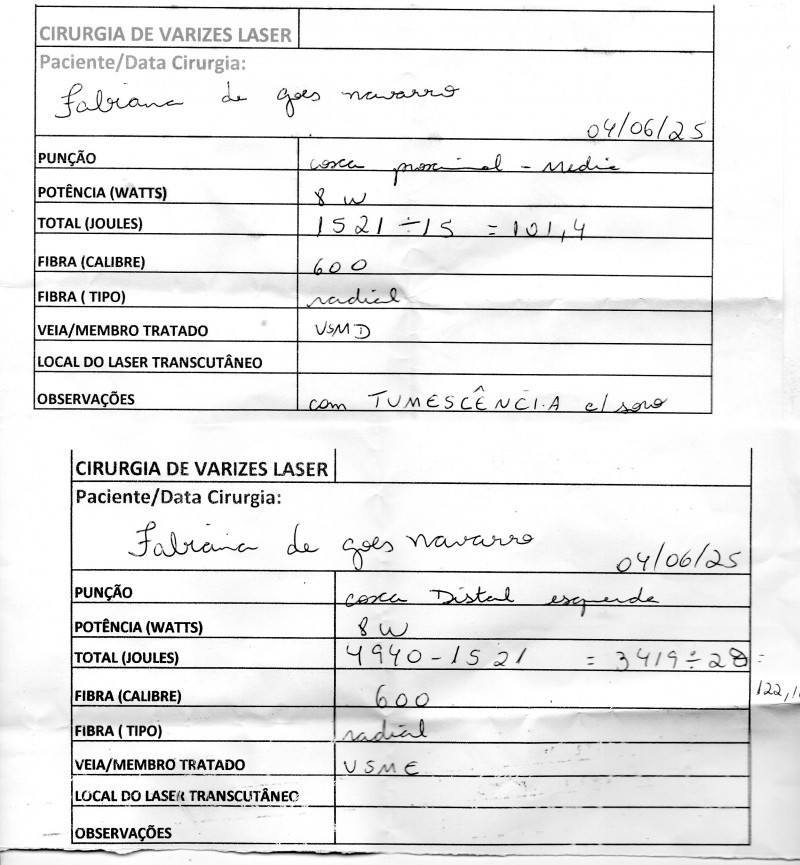 CIRURGIA DE VARIZES LASER
Paciente/Data Cirurgia:
Fabiana de goes navarro
04/06/25
PUNÇÃO coxa proximal - Medie
POTÊNCIA (WATTS) 8 W
TOTAL (JOULES) 1521 ÷ 15 = 101,4
FIBRA (CALIBRE) 600
FIBRA ( TIPO) radial
VEIA/MEMBRO TRATADO VSMD
LOCAL DO LASER TRANSCUTÂNEO
OBSERVAÇÕES com TUMESCÊNCIA c/ soro
CIRURGIA DE VARIZES LASER
Paciente/Data Cirurgia:
Fabiana de goes navarro
04/06/25
PUNÇÃO coxa Distal esquerda
POTÊNCIA (WATTS) 8 W
TOTAL (JOULES) 4940 - 1521 = 3419 ÷ 28 =
122,1
FIBRA (CALIBRE) 600
FIBRA ( TIPO) radial
VEIA/MEMBRO TRATADO VSME
LOCAL DO LASER TRANSCUTÂNEO
OBSERVAÇÕES